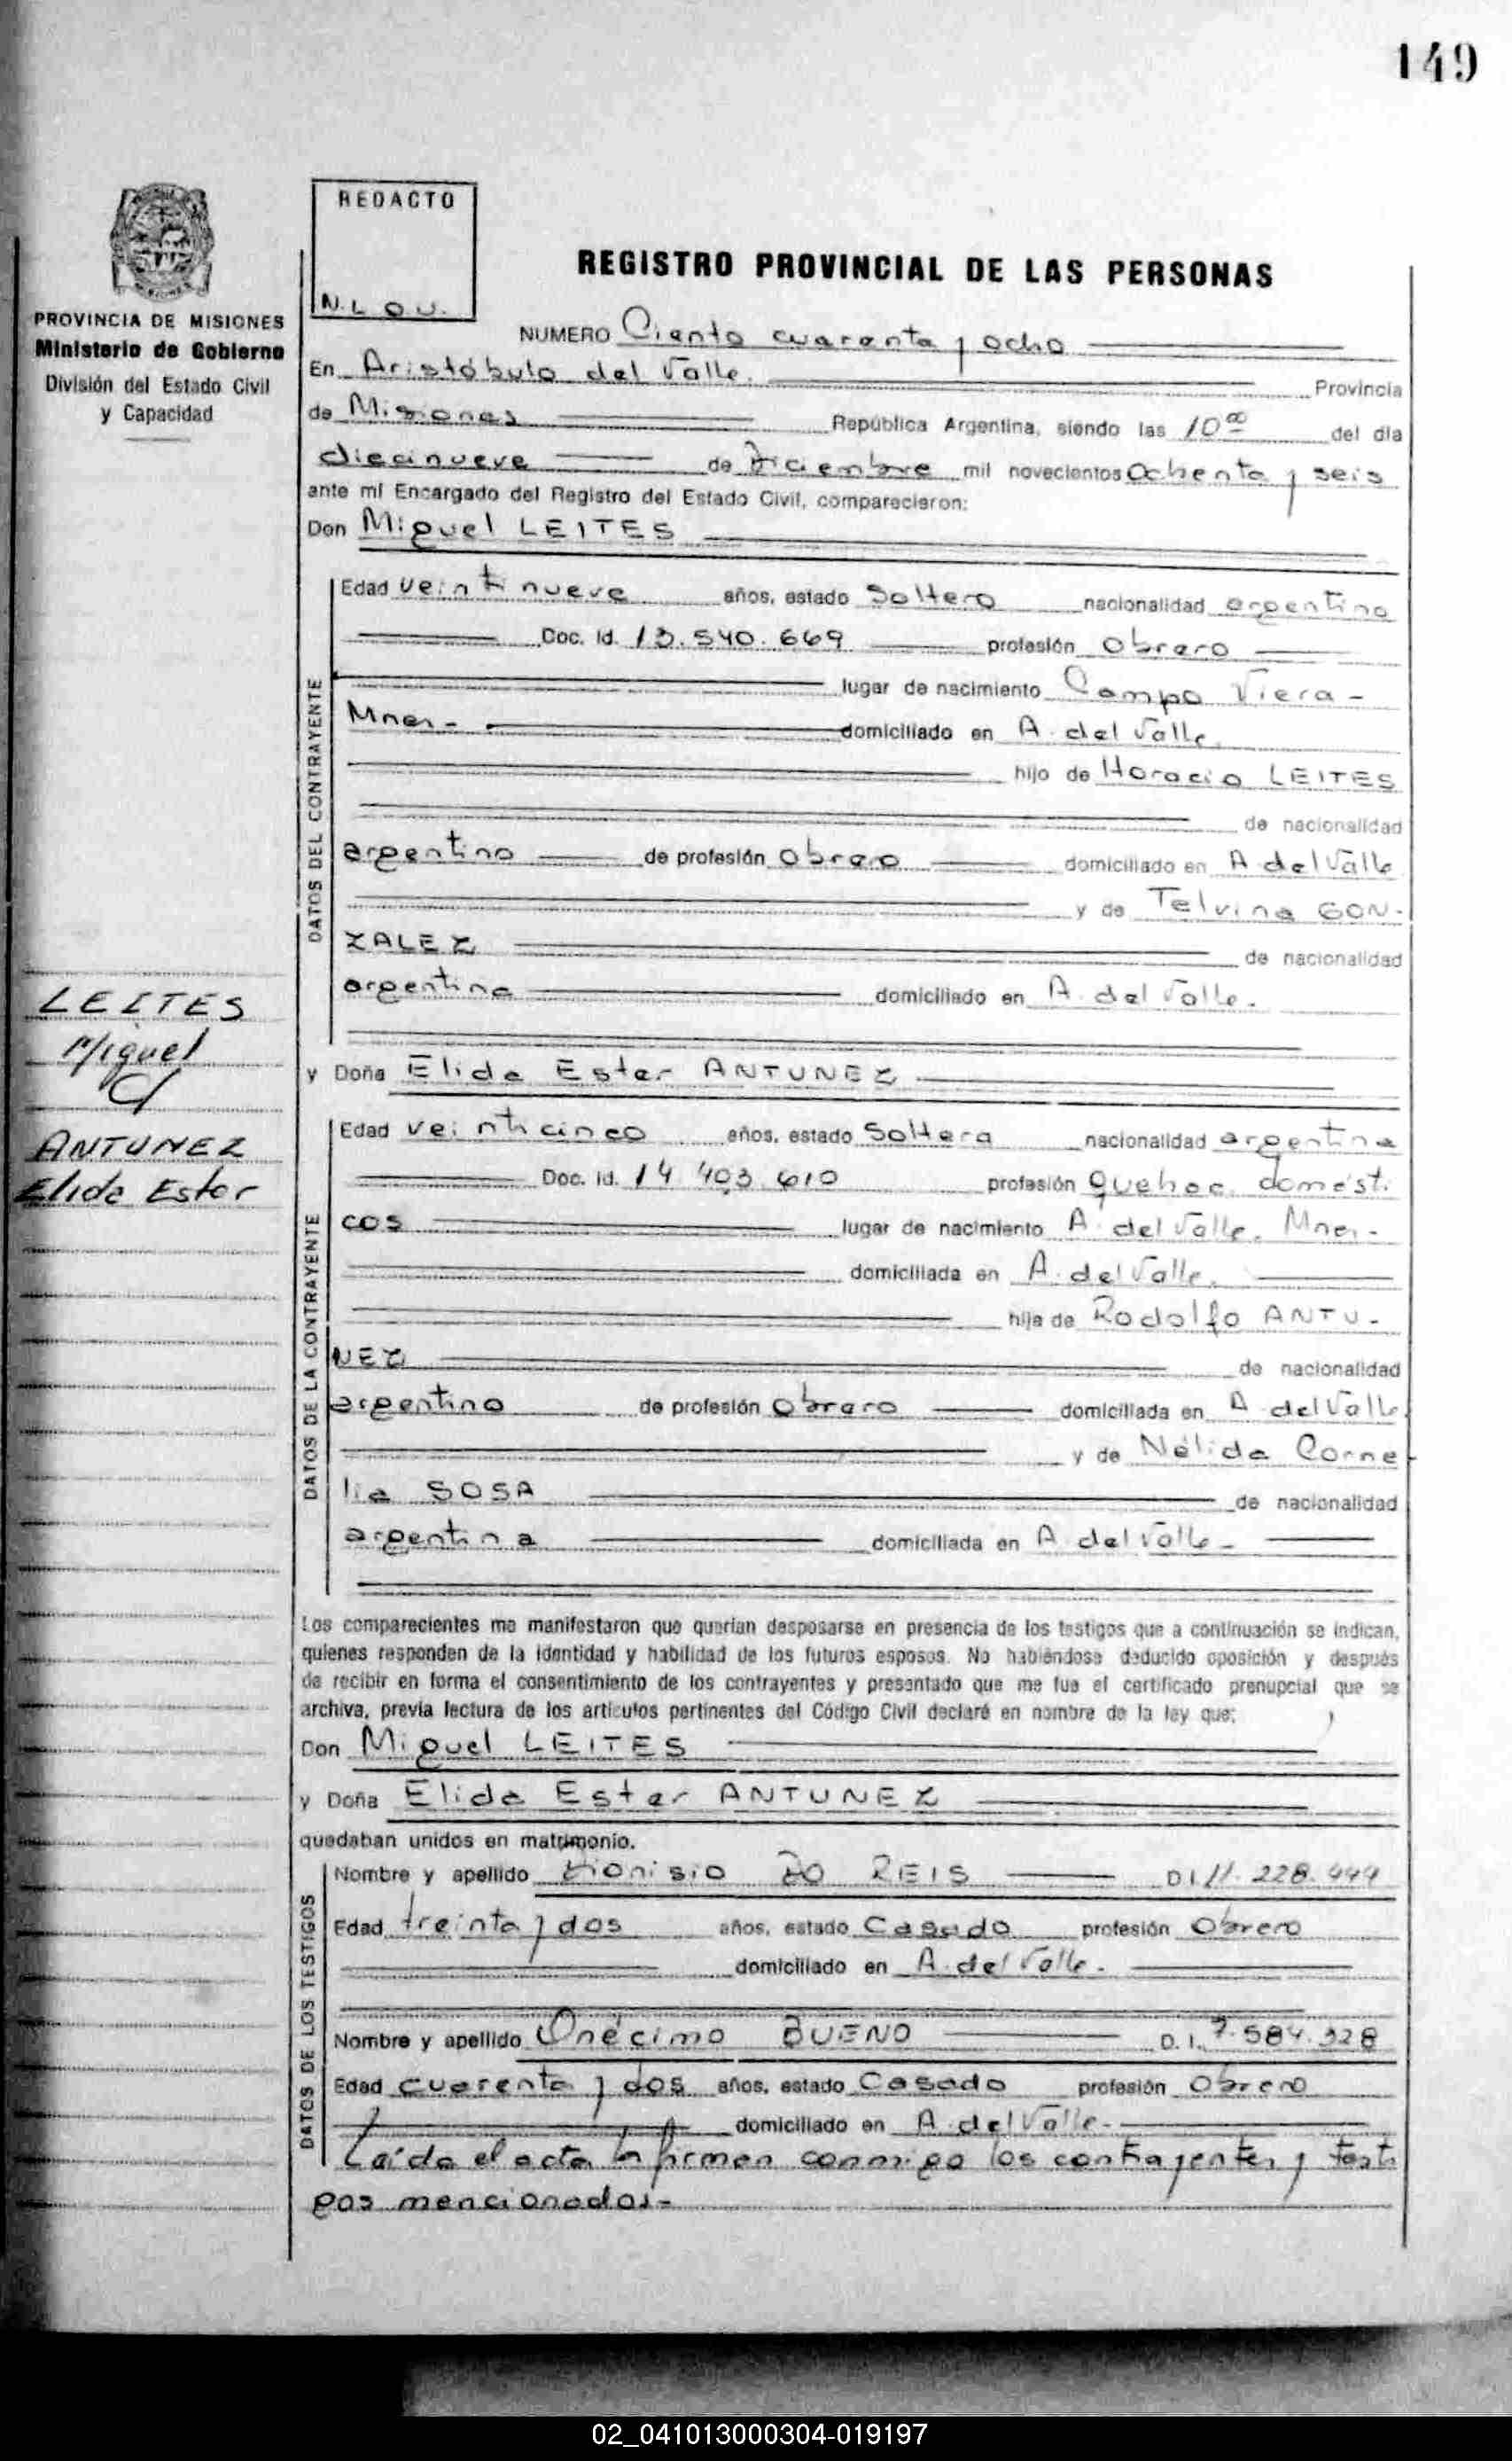 149
REDACTO
N.L.O.U.
PROVINCIA DE MISIONES
Ministerio de Gobierno
División del Estado Civil
y Capacidad
REGISTRO PROVINCIAL DE LAS PERSONAS
NUMERO Ciento cuarenta y ocho
En Aristóbulo del Valle. Provincia
de Misiones República Argentina, siendo las 10⁰⁰ del día
diecinueve de Diciembre mil novecientos Ochenta y seis
ante mí Encargado del Registro del Estado Civil, comparecieron:
Don Miguel LEITES
DATOS DEL CONTRAYENTE
Edad veintinueve años, estado Soltero nacionalidad argentino
Doc. Id. 13.540.669 profesión Obrero
lugar de nacimiento Campo Viera -
Mnes.- domiciliado en A. del Valle.
hijo de Horacio LEITES
de nacionalidad
argentino de profesión Obrero domiciliado en A. del Valle
y de Telvina GON-
ZALEZ de nacionalidad
argentina domiciliado en A. del Valle.
y Doña Elida Ester ANTUNEZ
LEITES
Miguel
C/
ANTUNEZ
Elida Ester
DATOS DE LA CONTRAYENTE
Edad veinticinco años, estado Soltera nacionalidad argentina
Doc. Id. 14.403.610 profesión Quehac. domésti
cos lugar de nacimiento A. del Valle. Mnes.-
domiciliada en A. del Valle.
hija de Rodolfo ANTU-
NEZ de nacionalidad
argentino de profesión Obrero domiciliada en A. del Valle
y de Nélida Corne
lia SOSA de nacionalidad
argentina domiciliada en A. del Valle-
Los comparecientes me manifestaron que querían desposarse en presencia de los testigos que a continuación se indican,
quienes responden de la identidad y habilidad de los futuros esposos. No habiéndose deducido oposición y después
de recibir en forma el consentimiento de los contrayentes y presentado que me fue el certificado prenupcial que se
archiva, previa lectura de los artículos pertinentes del Código Civil declaré en nombre de la ley que:
Don Miguel LEITES
y Doña Elida Ester ANTUNEZ
quedaban unidos en matrimonio.
DATOS DE LOS TESTIGOS
Nombre y apellido Dionisio DO REIS D.I. 11.228.444
Edad treinta y dos años, estado Casado profesión Obrero
domiciliado en A. del Valle.
Nombre y apellido Onécimo BUENO D.I. 7.584.328
Edad cuarenta y dos años, estado Casado profesión Obrero
domiciliado en A. del Valle-
Leída el acta la firman conmigo los contrayentes y testi
gos mencionados.-
02_041013000304-019197